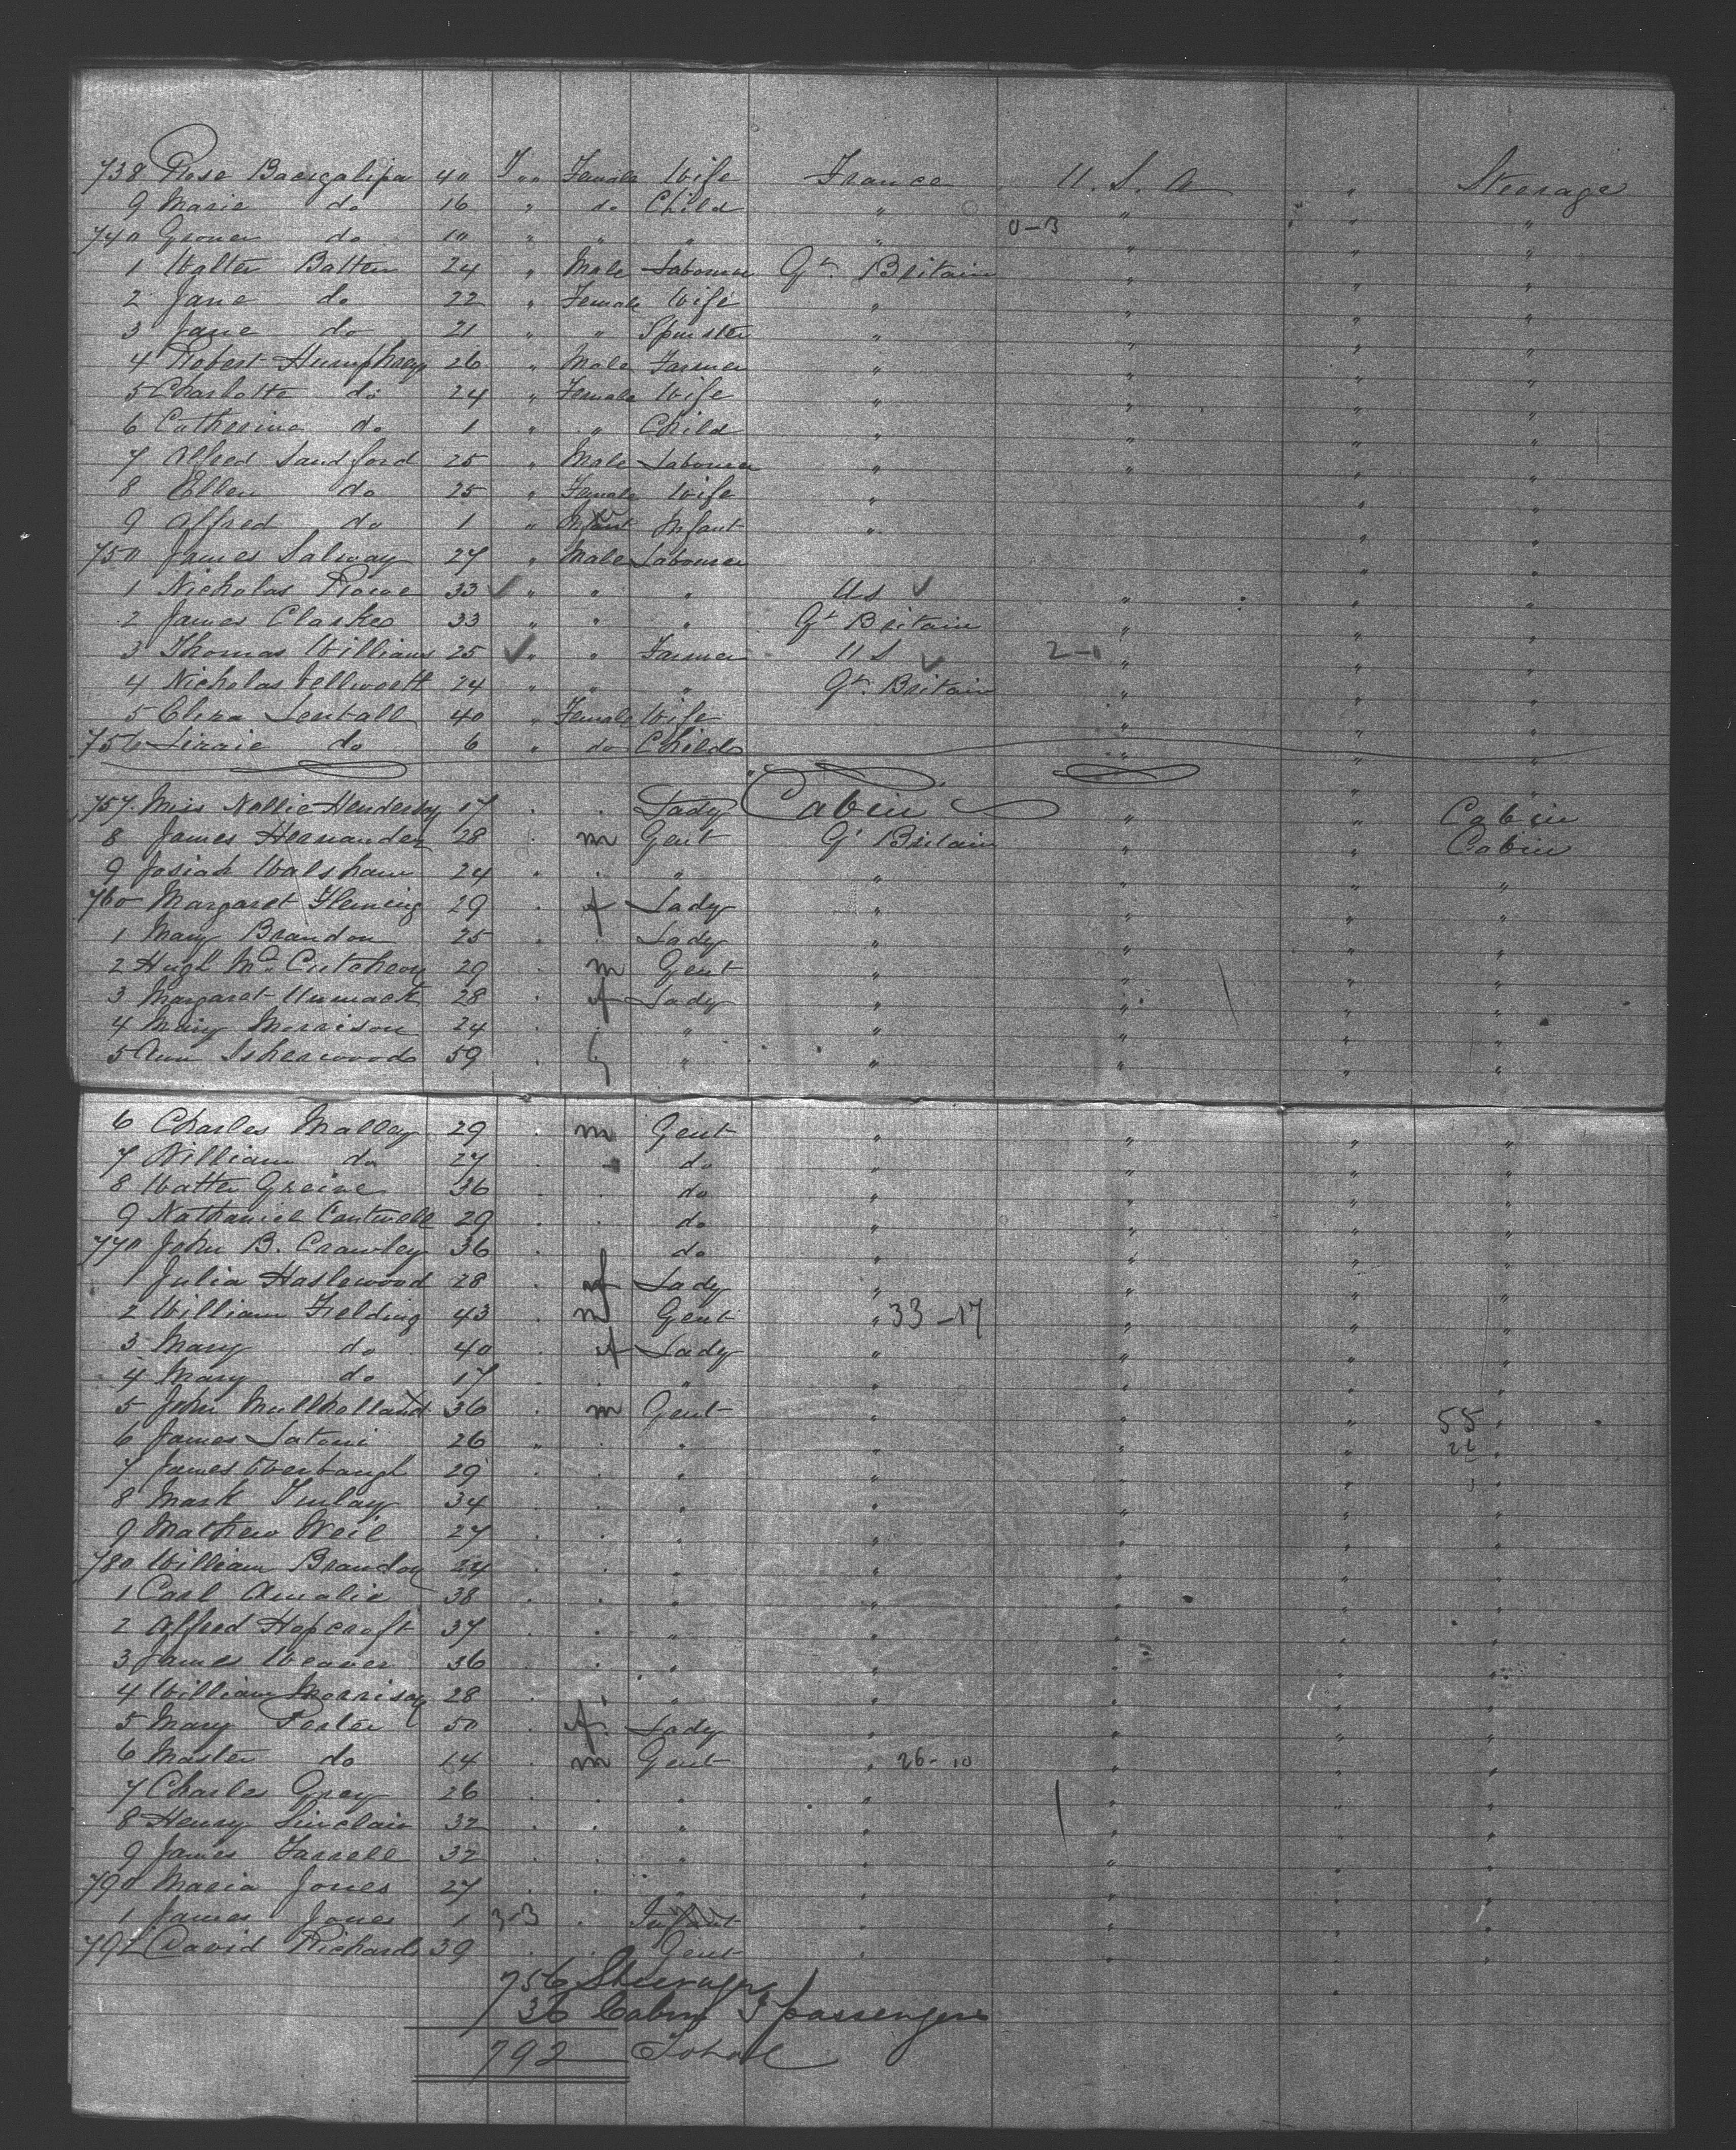 738 Rose Bacigalipa 40 Female Wife France U. S. A " Steerage
9 Marie do 16 " do Child " " " "
740 do 10 " " " " 0-3 " " "
1 Walter Batten 24 " Male Labourer Gt. Britain " " "
2 Jane do 22 " Female Wife " " " "
3 Jane do 21 " " Spinster " " " "
4 Robert Humphreys 26 " Male Farmer " " " "
5 Charlotte do 24 " Female Wife " " " "
6 Catherine do 1 " " Child " " " "
7 Alfred Sandford 25 " Male Labourer " " " "
8 Ellen do 25 " Female Wife " " "
9 Alfred do 1 " Infant Infant " " "
750 James Salway 27 " Male Labourer " "
1 Nicholas Rowe 33 ✓ " " " U S ✓ " " "
2 James Clarke 33 " " " Gt Britain " " "
3 Thomas Williams 25 ✓ " " Farmer U S ✓ 2-0 " " "
4 Nicholas 24 " " " Gt. Britain " " "
5 Eliza Sentall 40 " Female Wife " " "
756 Lizzie do 6 " do Child " " "
Cabin
757 Miss Nellie Henderson 17 . . Lady " " Cabin
8 James Hernandez 28 . m Gent Gt Britain " " Cabin
9 Josiah Walsham 24 " . " " " " "
760 Margaret Fleming 29 . f Lady " " " "
1 Mary Brandon 25 . . Lady " " " "
2 Hugh Mc. Cutcheon 29 . m Gent " " " "
3 Margaret 28 . f Lady " " " "
4 Mary Morrison 24 . . " " " " "
5 Ann Isherwood 59 . " " " " "
6 Charles Malley 29 . m Gent " " " "
7 William do 27 . " do " " " "
8 Walter Greive 36 . . do " " " "
9 Nathaniel Cantwell 29 . . do " " " "
770 John B. Crawley 36 . . do " " " "
1 Julia Haslewood 28 . f Lady " " " "
2 William Fielding 43 . m Gent " 33-17 " " "
3 Mary do 40 . f Lady " " " "
4 Mary do 17 . . " " " " "
5 John Mullholland 36 . m Gent " " " 55 "
6 James 26 " . " " " " "
7 James 29 . . " " " " "
8 Mark 34 . . " " " " "
9 Mathew Weil 27 . . " " " " "
780 William Brandon 24 . . " " " " "
1 Carl Amalie 38 . . " " " " "
2 Alfred Hopcroft 37 . . " " " " "
3 James Weaver 36 . . " " " " "
4 William Morrison 28 . . " " " " "
5 Mary Porter 50 . f. Lady " " " "
6 Master do 14 . m Gent " 26-10 " " "
7 Charles Grey 26 . . " " " " "
8 Henry Sinclair 32 . . " " " " "
9 James Farrell 32 . . " " " " "
790 Maria Jones 27 . . " " " " "
1 James Jones 1 3-3 . Infant " " " "
792 David Richards 39 . . Gent " " " "
756 Steerage
36 Cabin passengers
792 Total